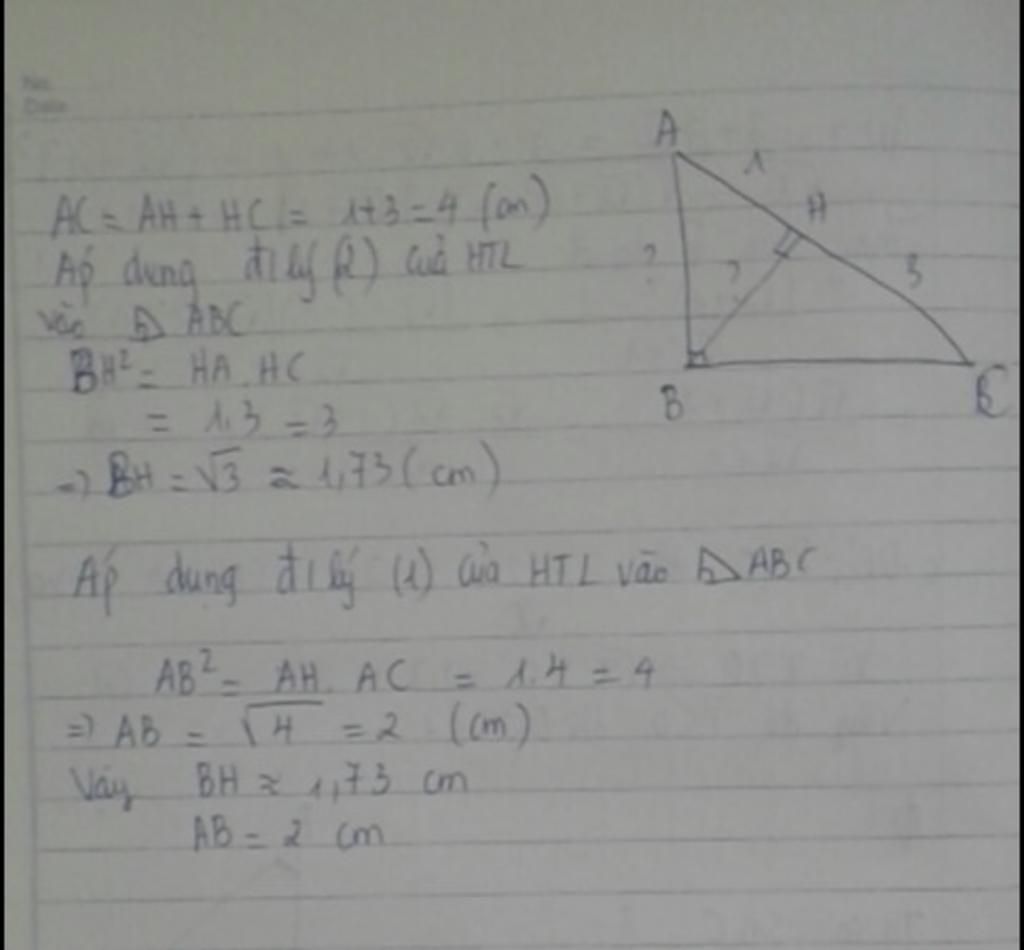 No.
Date
A
1
AC = AH + HC = 1+3 = 4 (cm)
H
Áp dung đ/lý (2) của HTL
?
?
3
vào ⊿ ABC
BH² = HA . HC
B
C
= 1.3 = 3
=> BH = √3 ≈ 1,73 (cm)
Áp dung đ/lý (1) của HTL vào ⊿ ABC
AB² = AH . AC = 1.4 = 4
=> AB = √4 = 2 (cm)
Vậy BH ≈ 1,73 cm
AB = 2 cm